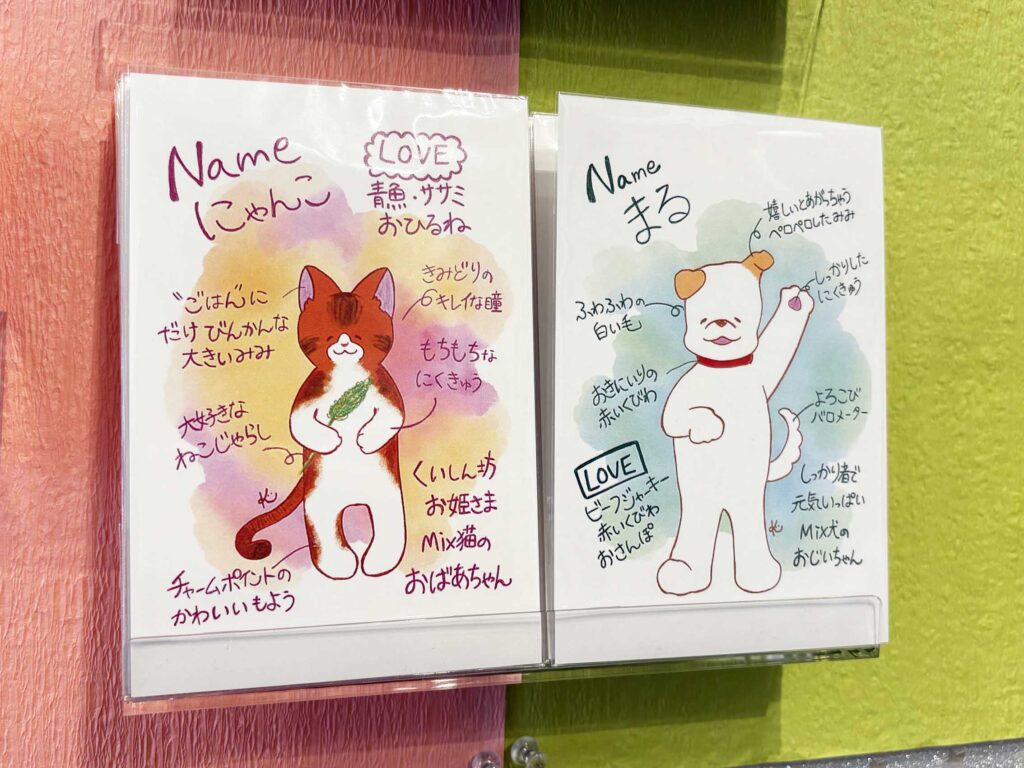 Name
にゃんこ
LOVE
青魚・ササミ
おひるね
"ごはん"に
だけ びんかんな
大きいみみ
きみどりの
キレイな瞳
もちもちな
にくきゅう
大好きな
ねこじゃらし
くいしん坊
お姫さま
Mix猫の
おばあちゃん
チャームポイントの
かわいいもよう
Name
まる
嬉しいとあがっちゃう
ペロペロしたみみ
しっかりした
にくきゅう
ふわふわの
白い毛
おきにいりの
赤いくびわ
よろこび
バロメーター
LOVE
ビーフジャーキー
赤いくびわ
おさんぽ
しっかり者で
元気いっぱい
Mix犬の
おじいちゃん